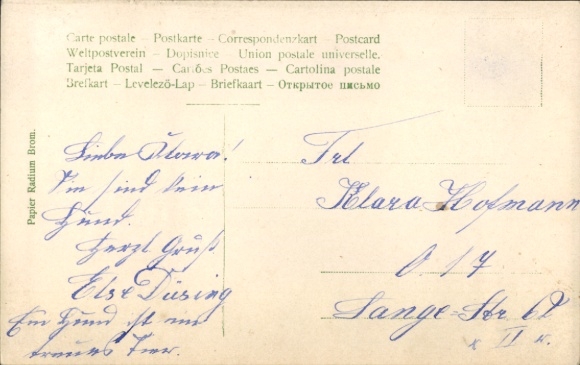 Carte postale – Postkarte – Correspondenzkart – Postcard
Weltpostverein – Dopisnice – Union postale universelle.
Tarjeta Postal — Cartões Postaes — Cartolina postale
Brefkart – Levelező-Lap – Briefkaart – Открытое письмо
Papier Radium Brom.
Liebe Klara!
Sie sind kein
Hund.
Herzl. Gruß
Else Düsing
Ein Hund ist ein
treues Tier.
Frl
Klara Hofmann
O 17
Lange-Str. 62
II